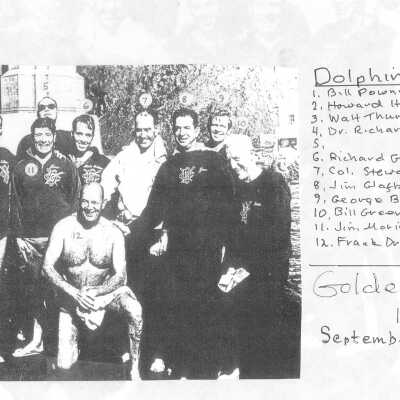 Dolphin
1. Bill Pown
2. Howard H
3. Walt Thur
4. Dr. Richar
5.
6. Richard G
7, Col. Stewa
8, Jim Glaft
9, George B
10, Bill Green
11. Jim Mari
12. Frank Dr
Golde
1
Septemb
7
8
9
11
12